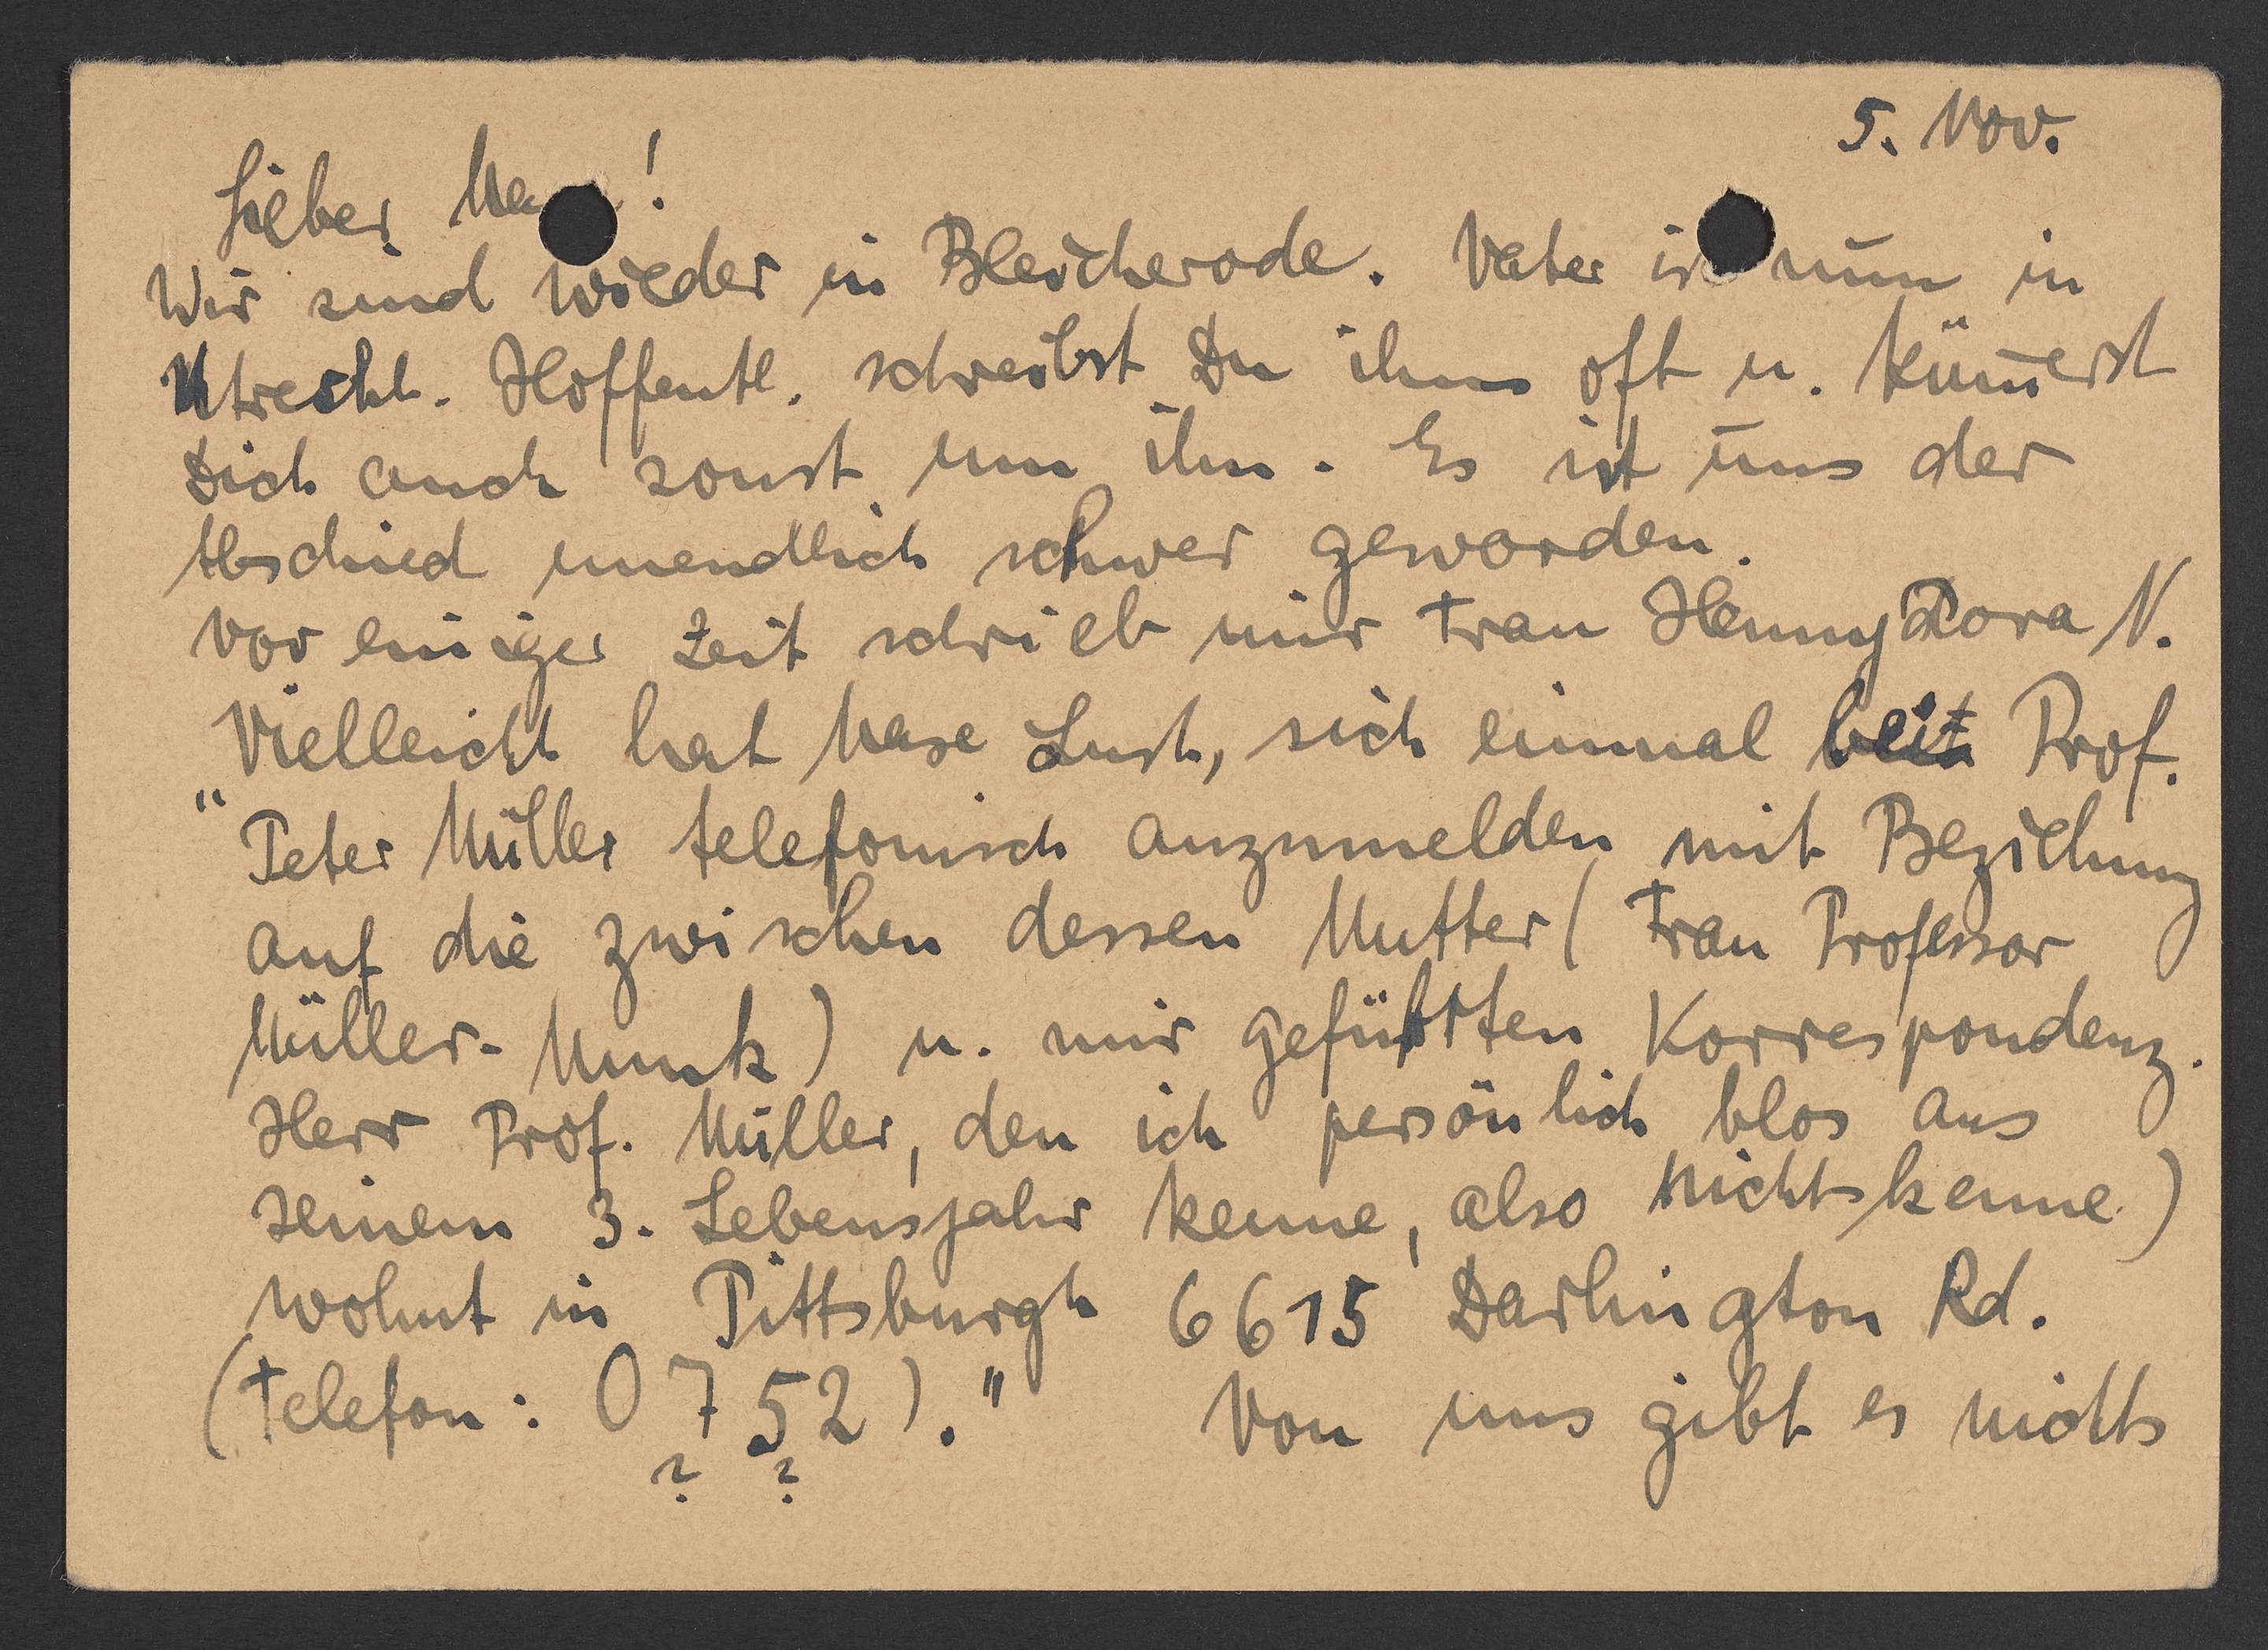 5. Nov.
Lieber
Wir sind wieder in Bleicherode. Vater is nun in
Utrecht. Hoffentl. schreibst Du ihm oft u. küm̄erst
Dich auch sonst um ihn. Es ist uns der
Abschied unendlich schwer geworden.
Vor einiger Zeit schrieb mir Frau Henny Dora N.
"Vielleicht hat Mase Lust, sich einmal bei Prof.
Peter Müller telefonisch anzumelden mit Beziehung
auf die zwischen dessen Mutter (Frau Professor
Müller-Munk) u. mir geführten Korrespondenz.
Herr Prof. Müller, den ich persönlich blos aus
seinem 3. Lebensjahr kenne, also nicht kenne)
wohnt in Pittsburgh 6615 Darlington Rd.
(Telefon: 0752)." Von uns gibt es nichts
? ?